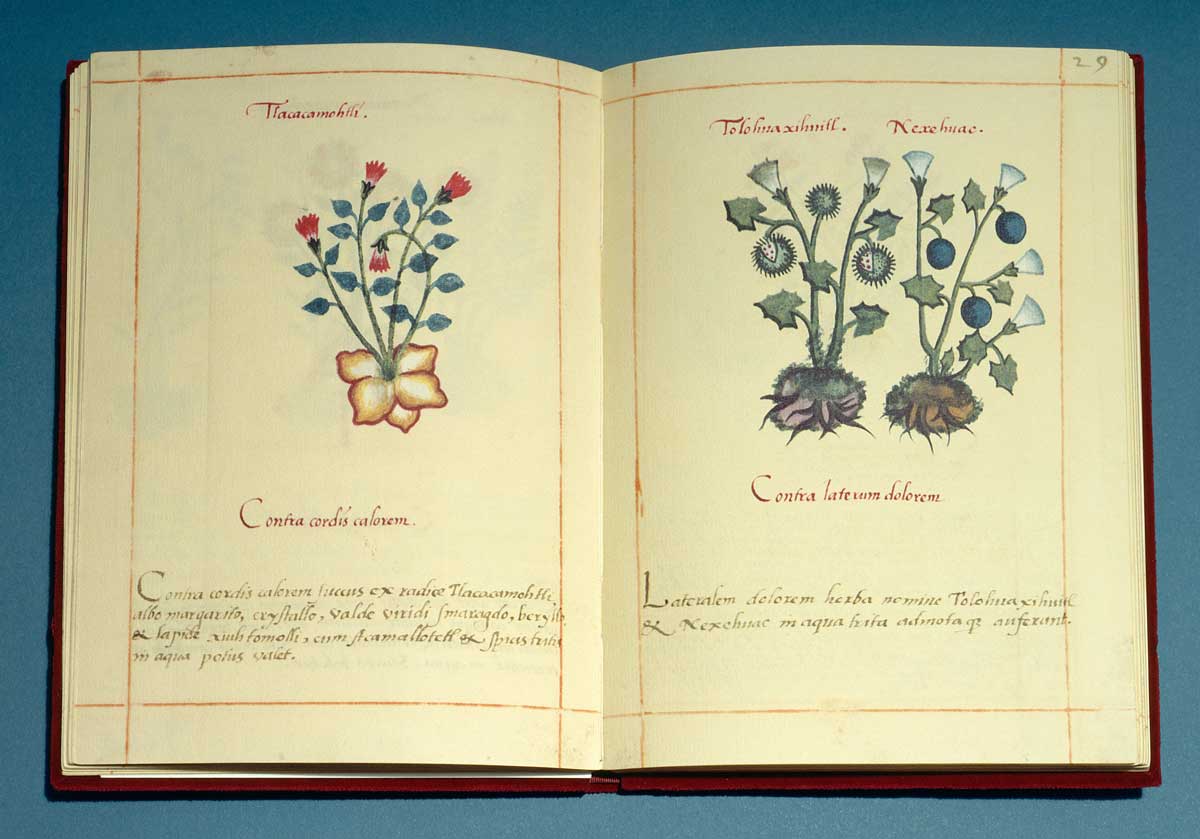 Tlacacamohtli.
Contra cordis calorem.
Contra cordis calorem succus ex radice Tlacacamohtli
albo margarito, crystallo, valde viridi smaragdo, beryllo
& lapide xiuhtomolli, cum & tritis
in aqua potus valet.
29
Tolohuaxihuitl. Nexehuac.
Contra laterum dolorem
Lateralem dolorem herba nomine Tolohuaxihuitl
& Nexehuac in aqua trita admotaq̃ auferunt.